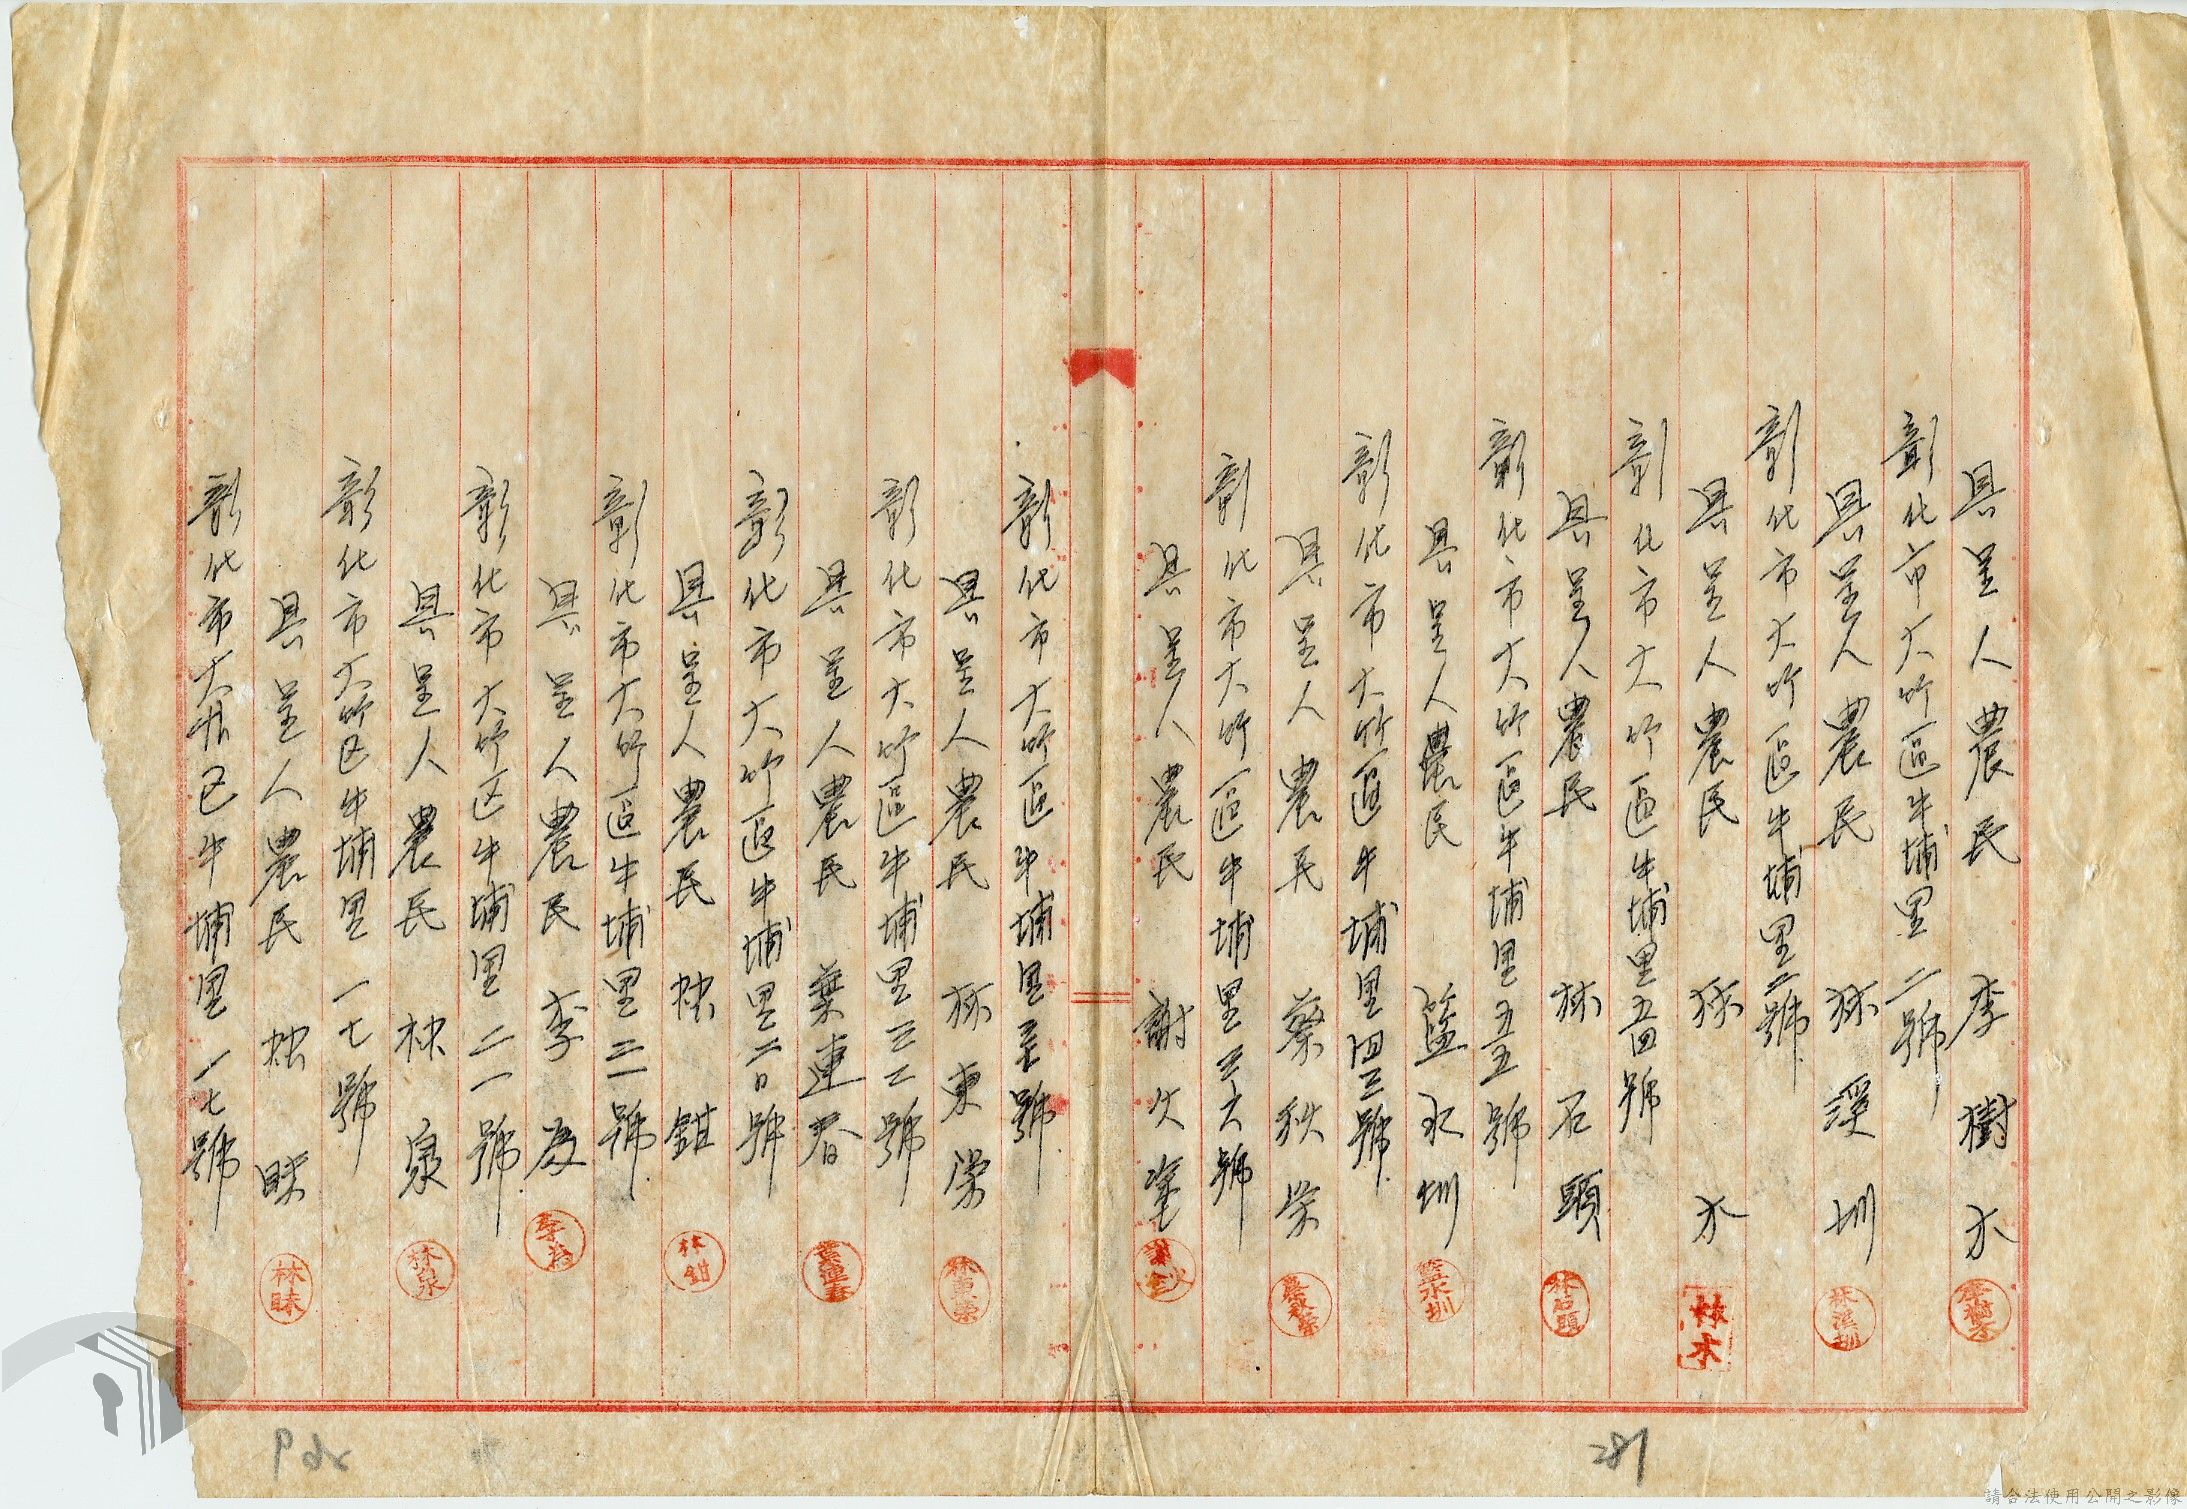 具呈人農民 李樹木
彰化市大竹區牛埔里二號
具呈人農民 林溪圳
彰化市大竹區牛埔里二號
具呈人農民 林木
彰化市大竹區牛埔里五四號
具呈人農民 林石頭
彰化市大竹區牛埔里五五號
具呈人農民 籃水圳
彰化市大竹區牛埔里四三號
具呈人農民 蔡秋柴
彰化市大竹區牛埔里三六號
具呈人農民 謝火
彰化市大竹區牛埔里號
具呈人農民 林東榮
彰化市大竹區牛埔里三二號
具呈人農民 葉連春
彰化市大竹區牛埔里二號
具呈人農民 林鉗
彰化市大竹區牛埔里號
具呈人農民 李
彰化市大竹区牛埔里二一號
具呈人農民 林泉
彰化市大竹区牛埔里一七號
具呈人農民 林昧
彰化市大竹区牛埔里一七號
林溪圳
林木
林石頭
籃水圳
蔡秋柴
林東榮
葉連春
林鉗
林泉
林昧
281
請合法使用公開之影像